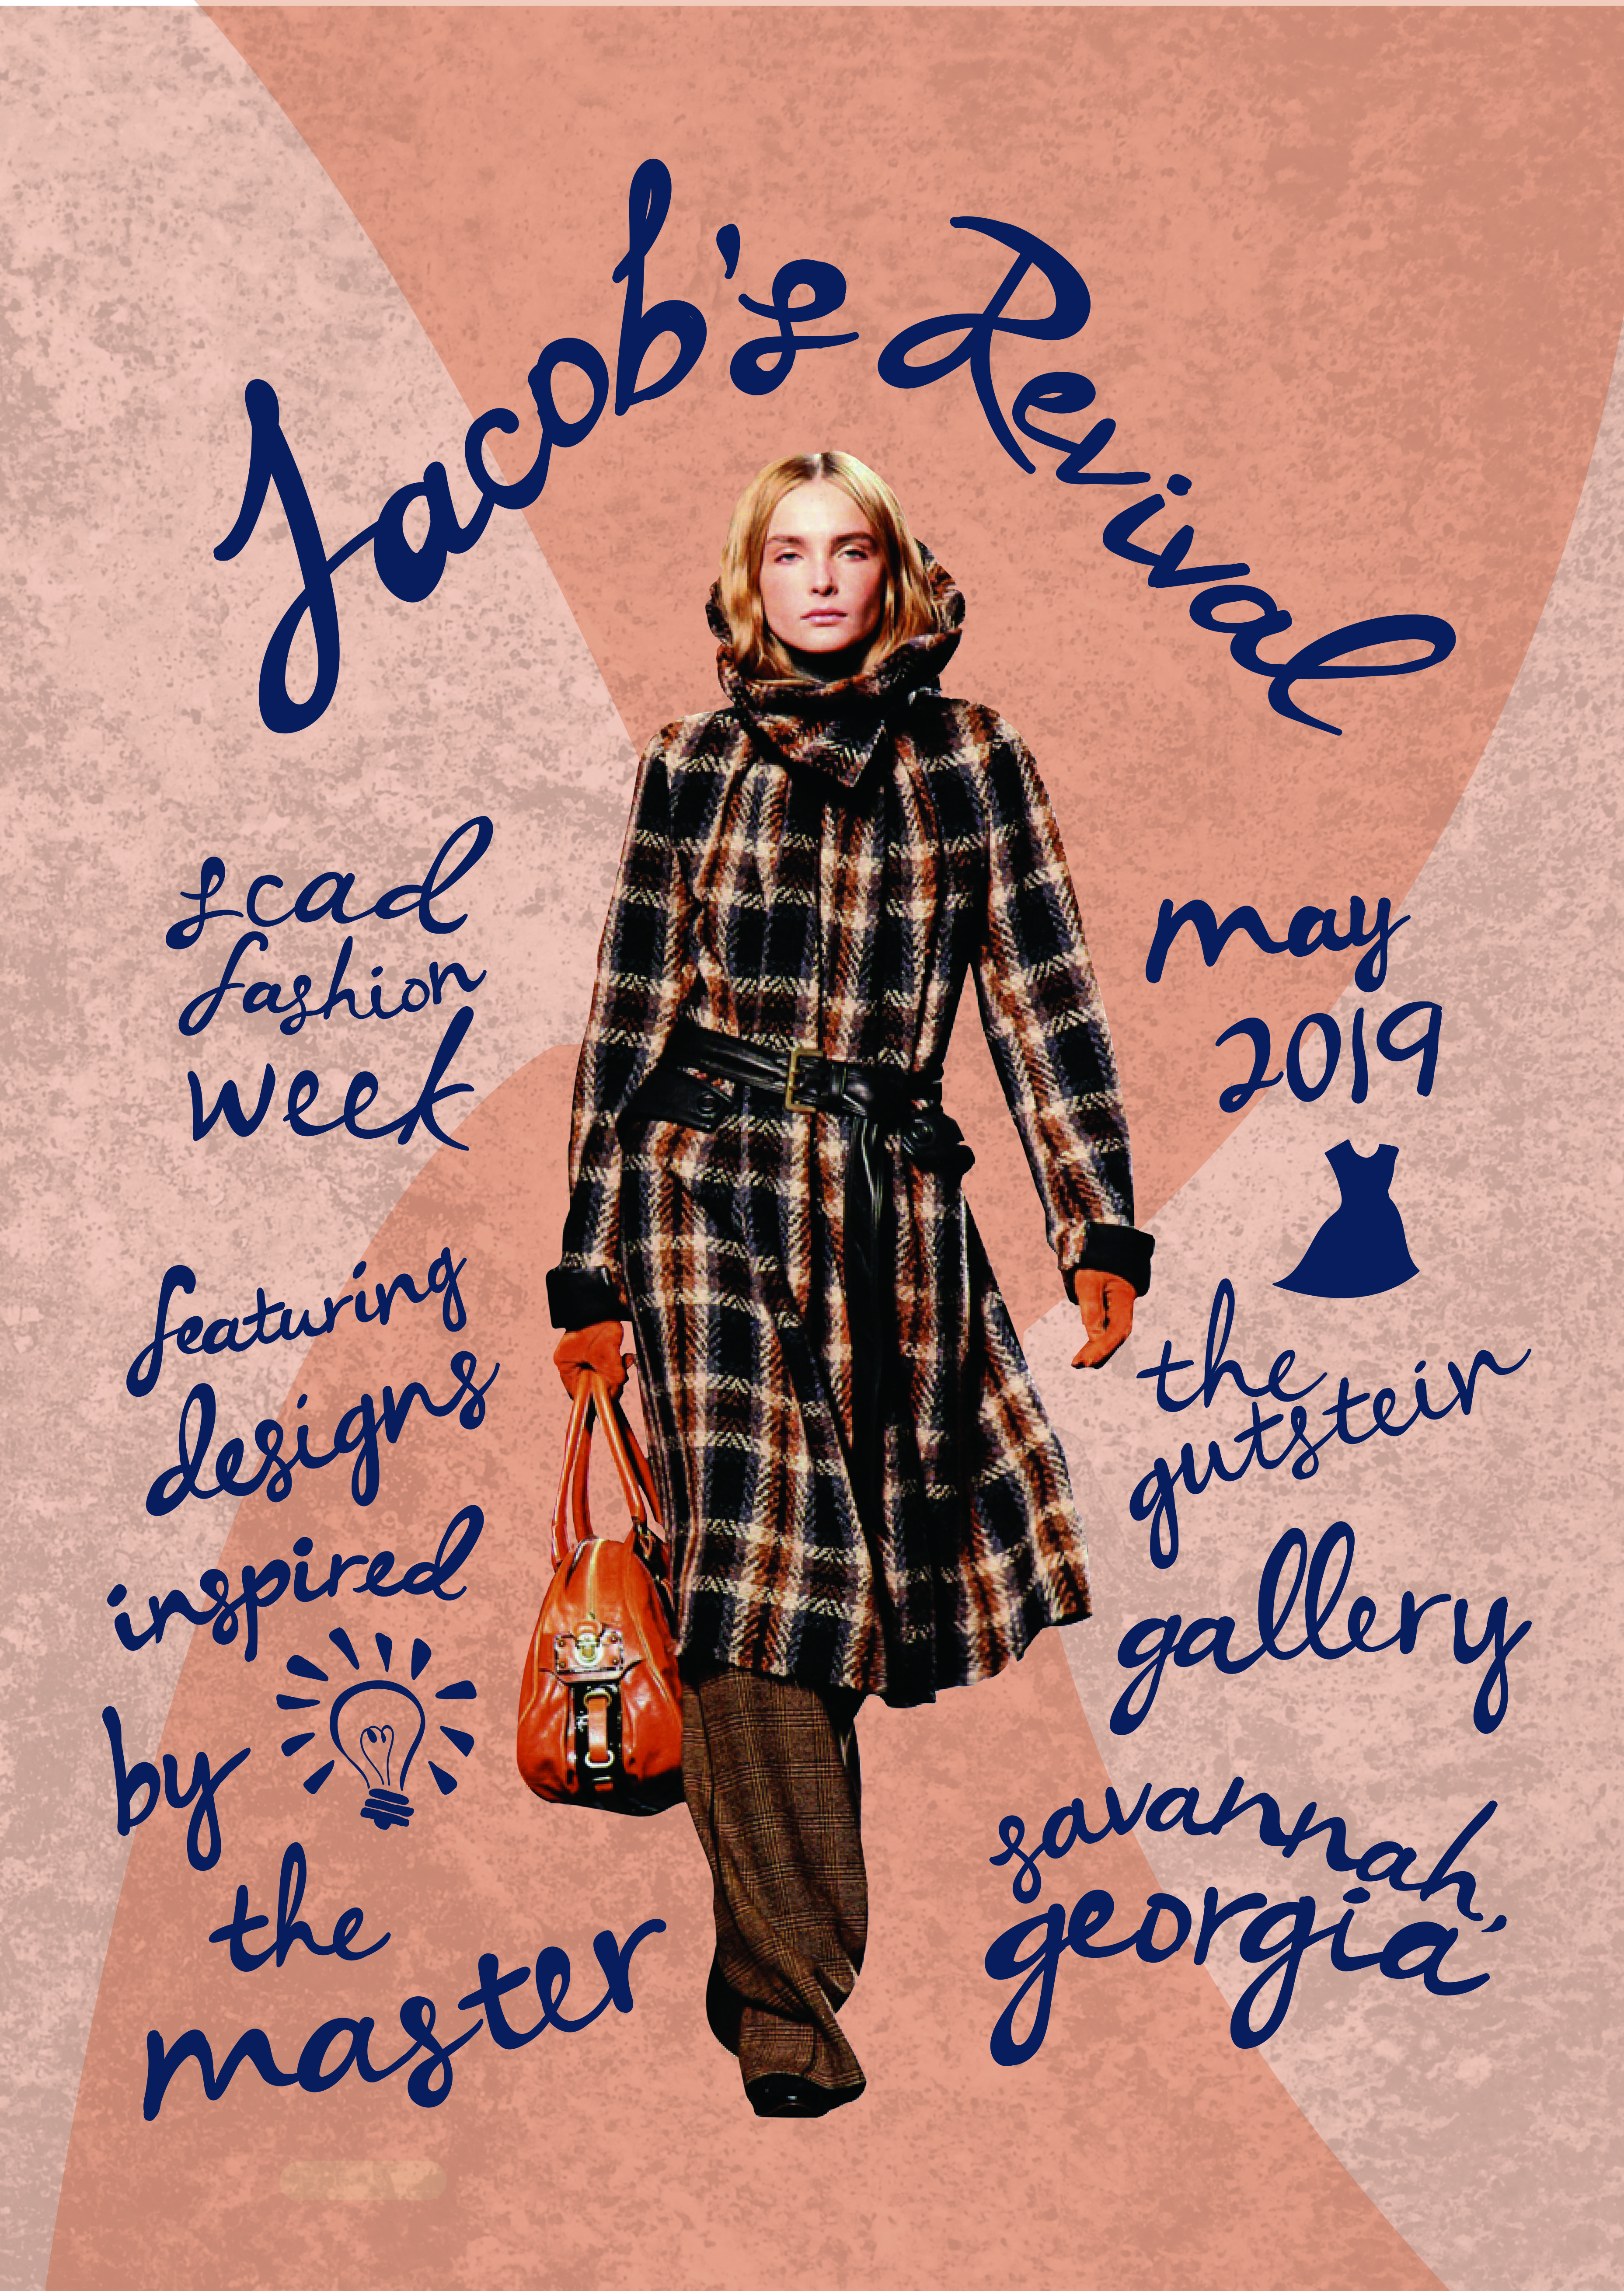 Jacob's Revival
scad
fashion
week
featuring
designs
inspired
by
the
master
may
2019
the
gutstein
gallery
savannah,
georgia